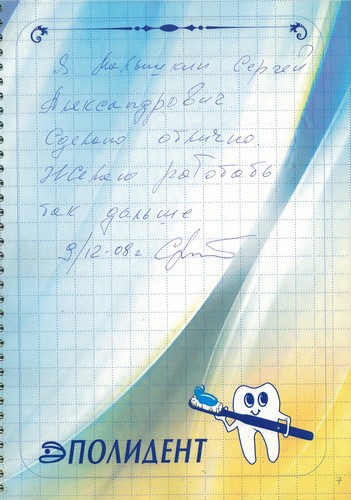 Я Малышкин Сергей
Александрович.
Сделано отлично.
Желаю работать
так дальше
9/12-08 г.
ЭПОЛИДЕНТ
7